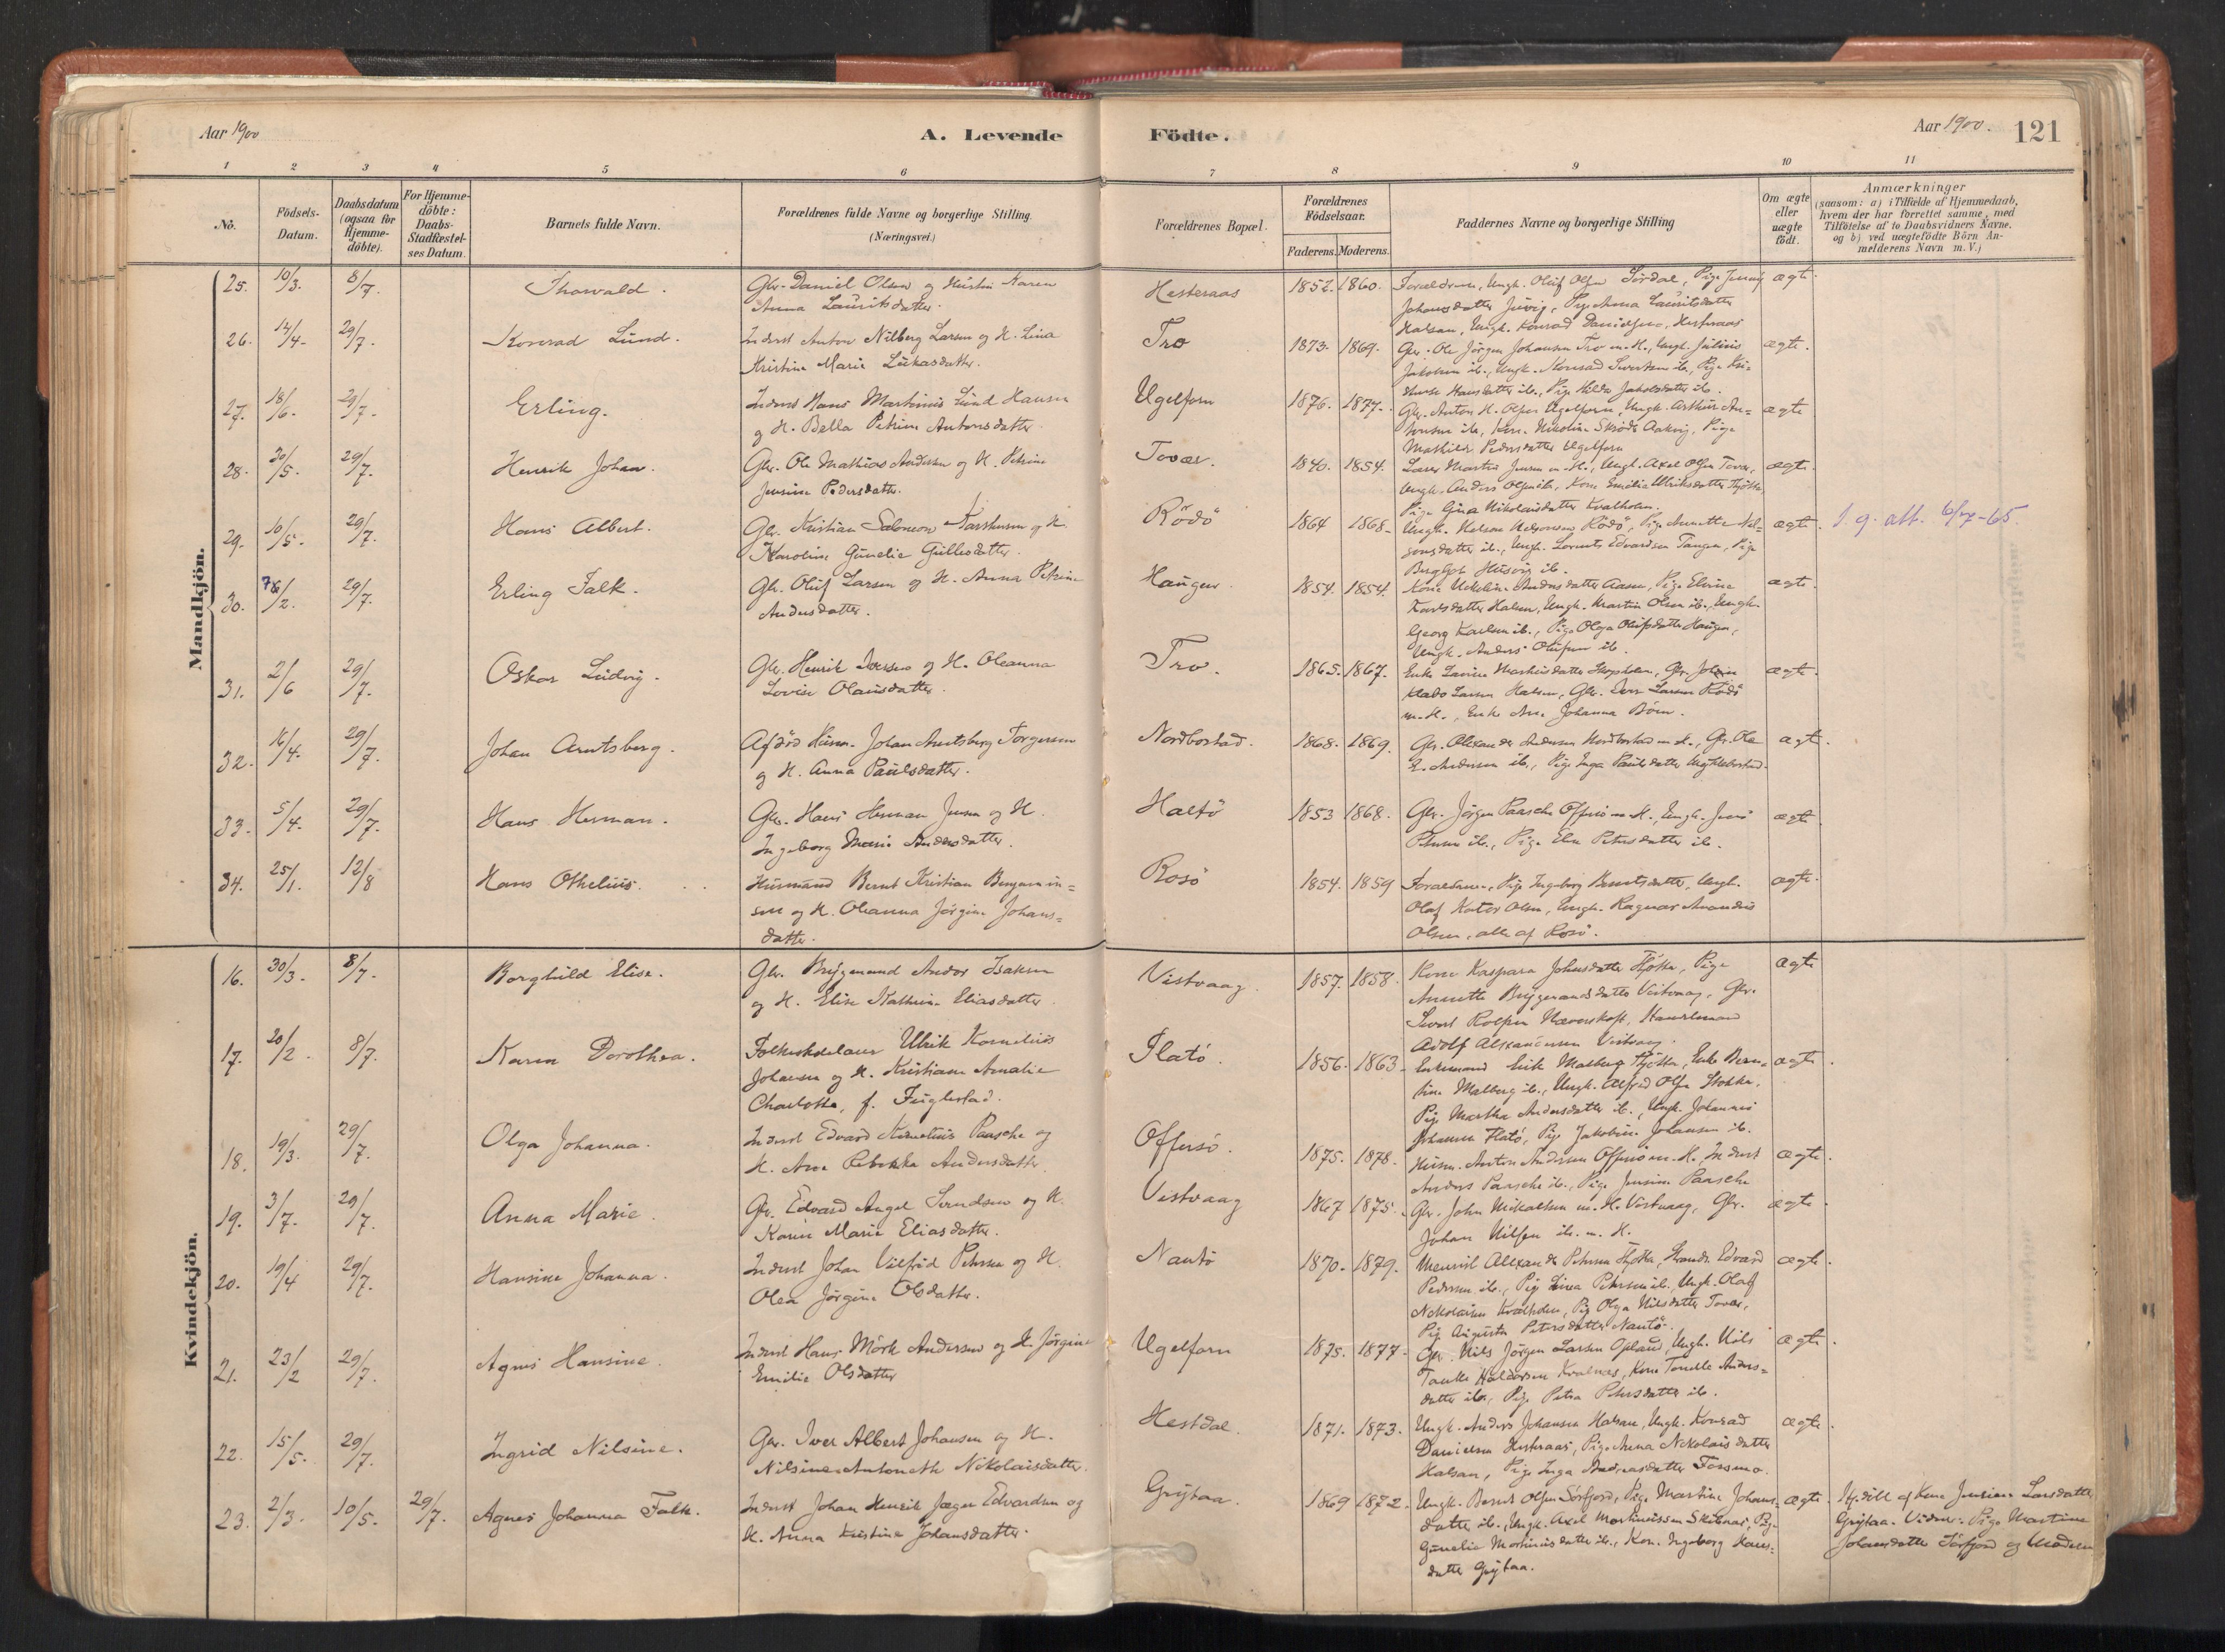 Aar 1900
A. Levende
Födte.
Aar 1900.
121
1 2 3 4 5 6 7 8 9 10 11
No.
Födsels-Datum.
Daabsdatum (ogsaa for Hjemme-döbte).
For Hjemme-döbte: Daabs-Stadfæstel-ses Datum.
Barnets fulde Navn.
Forældrenes fulde Navne og borgerlige Stilling. (Næringsvei.)
Forældrenes Bopæl.
Forældrenes Födselsaar.
Faderens. Moderens.
Faddernes Navne og borgerlige Stilling
Om ægte eller uægte födt.
Anmærkninger
(saasom: a) i Tilfælde af Hjemmedaab,
hvem der har forrettet samme, med
Tilföielse af to Daabsvidners Navne.
og b) ved uægtefödte Börn An-
melderens Navn m. V.)
Mandkjön.
25. 10/3. 8/7. Thorvald. Gbr. Daniel Olsen og Hustru Karen
Anna Lauritsdatter. Hesteraas 1852. 1860. Forældrene, Ungk. Oluf Olsen Sördal, Pige Jenny ægte.
Johansdatter, Pige Anna Lauritsdatter
Halsan, Ungk. Konrad Danielsen, Hesteraas
26. 14/4. 29/7. Konrad Lund. Inderst Anton Nilberg Larsen og H. Lina
Kristine Marie Lukasdatter. Tro 1873. 1869. Gbr. Ole Jörgen Johansen Tro m. H., Ungk. Julius ægte.
Jakobsen ib., Ungk. Konrad Sivertsen ib., Pige Kri-
Hansdatter ib., Pige Hilda Jakobsdatter ib.
27. 18/6. 29/7. Erling. Inderst Hans Martinus Lund Hansen
og H. Bella Petrine Antonsdatter. Ugelforn 1876. 1874. Gbr. Anton H. Olsen Ugelforn, Ungk. Arthur An- ægte
tonsen ib., Kone Nikoline Aakvig, Pige
Mathilde Pedersdatter Ugelforn
28. 30/5. 29/7. Henrik Johan. Gbr. Ole Mathias Andersen og H. Petrine
Jensine Pedersdatter. Tovær. 1840. 1854. Martin Jensen m. H., Ungk. Axel Olsen Tovær, ægte.
Ungk. Anders Olsen ib., Kone Emilie Ulriksdatter Tjötta
Pige Gina Nikolaisdatter Kvalholm.
29. 10/5. 29/7. Hans Albert. Gbr. Kristian Salomon Karstensen og H.
Karoline Gunelie Gullesdatter. Rödö 1864 1868. Ungk. Nelson Nelsonsen Rödö, Pige Annette Nel- ægte. 1. g. att. 6/7-65.
sonsdatter ib., Ungk. Lorents Edvardsen Tangen, Pige
Bergljot Husvig ib.
30. 7/2. 29/7. Erling Falk. Gbr. Oluf Larsen og H. Anna Petrine
Andersdatter. Haugen. 1854. 1854. Kone Andersdatter Aasen, Pige Elvine ægte.
Karlsdatter Halsen, Ungk. Martin Olsen ib., Ungk.
Georg Karlsen ib., Pige Olga Olufsdatter Haugen,
Ungk. Anders Olufsen ib.
31. 2/6 29/7. Oskar Ludvig. Gbr. Henrik Iversen og H. Oleanna
Lovise Olausdatter. Tro. 1865. 1867. Enke Lovise Martinsdatter, Gbr. Johan ægte.
Larsen Halsen, Gbr. Iver Larsen Rödö
m. H., Enke Ane Johanna Böen.
32. 16/4. 29/7. Johan Arntsberg. Afdöd Husm. Johan Arntsberg Torgersen
og H. Anna Paulsdatter. Nordbostad. 1868. 1869. Gbr. Alexander Andersen Nordbostad m. H., Gbr. Ole ægte.
E. Andersen ib., Pige Inga Paulsdatter
33. 5/4. 29/7. Hans Herman. Gbr. Hans Herman Jensen og H.
Ingeborg Marie Andersdatter. Haltö 1853 1868. Gbr. Jörgen Paasche Offersö m. H., Ungk. Jens ægte
Petersen ib., Pige Elen Petersdatter ib.
34. 25/1. 12/8 Hans Othelius. Husmand Bernt Kristian Benjamin-
sen og H. Oleanna Jörgine Johans-
datter. Rosö 1854. 1859 Forældrene, Pige Ingeborg Berntsdatter, Ungk. ægte.
Olaf Olsen, Ungk. Ragnar
Olsen, alle af Rosö.
Kvindekjön.
16. 30/3. 8/7. Borghild Elise. Gbr. Brygmand Andor Isaksen
og H. Elise Kathrine Eliasdatter. Vistvaag. 1857. 1858. Kone Kaspara Johnsdatter Tjötta, Pige ægte
Annette Brygmandsdatter Vistvaag, Gbr.
Sivert Rolfsen, Handelsmand
Adolf Alexandersen Vistvaag.
17. 20/2. 8/7. Karen Dorothea. Folkeskolelærer Ulrik Kornelius
Johansen og H. Kristiane Amalie
Charlotta, f. Fuglestad. Flatö. 1856. 1863. Enkemand Erik Malberg Tjötta, Enke Bern- ægte.
tine Malberg ib., Ungk. Alfred Olsen Stokka,
Pige Martha Andersdatter ib., Ungk. Johannes
Johansen Flatö, Pige Jakobine Johansen ib.
18. 19/3. 29/7. Olga Johanna. Inderst Edvard Kornelius Paasche og
H. Ane Rebekka Andersdatter. Offersö. 1875. 1878. Husm. Anton Andersen Offersö m. H., Inderst ægte.
Anders Paasche ib., Pige Jensine Paasche
19. 3/7. 29/7. Anna Marie. Gbr. Edvard Angel Svendsen og H.
Karen Marie Eliasdatter. Vistvaag 1867 1875. Gbr. John Mikalsen m. H. Vistvaag, Gbr. ægte.
Johan Nilsen ib. m. H.
20. 19/4 29/7. Hansine Johanna. Inderst Johan Vilfrid Petersen og H.
Olea Jörgine Olsdatter. Nautö 1870. 1879. Alexander Petersen Tjötta, Edvard ægte.
Pedersen ib., Pige Lina Petersen ib., Ungk. Olaf
Nikolaisen Kvalholm, Pige Olga Nilsdatter Tovær,
Pige Augusta Petersdatter Nautö.
21. 23/2 29/7. Agnes Hansine. Inderst Hans Mörk Andersen og H. Jörgine
Emilie Olsdatter Ugelforn 1875. 1877. Gbr. Nils Jörgen Larsen Opland, Ungk. Nils ægte.
Haldorsen Kvalnes, Kone Anders-
datter ib., Pige Petra Petersdatter ib.
22. 15/5. 29/7. Ingrid Nilsine. Gbr. Iver Albert Johansen og H.
Nilsine Antonette Nikolaisdatter. Hestdal. 1871. 1873. Ungk. Anders Johansen Halsan, Ungk. Konrad ægte.
Danielsen Hesteraas, Pige Anna Nikolaisdatter
Halsan, Pige Inga Andreasdatter Forsmo.
23. 2/3. 10/5. 29/7. Agnes Johanna Falk. Inderst Johan Henrik Jæger Edvardsen og
H. Anna Kristine Johansdatter. Grytaa. 1869 1872. Ungk. Bernt Olsen Sörfjord, Pige Martine Johans- ægte. Hj.döbt af Kone Jensine Larsdatter
datter ib., Ungk. Axel Martinussen, Pige Grytaa. Vidner: Pige Martine
Gunelie Martinusdatter ib., Kone Ingeborg Hans- Johansdatter Sörfjord og Moderen
datter Grytaa.